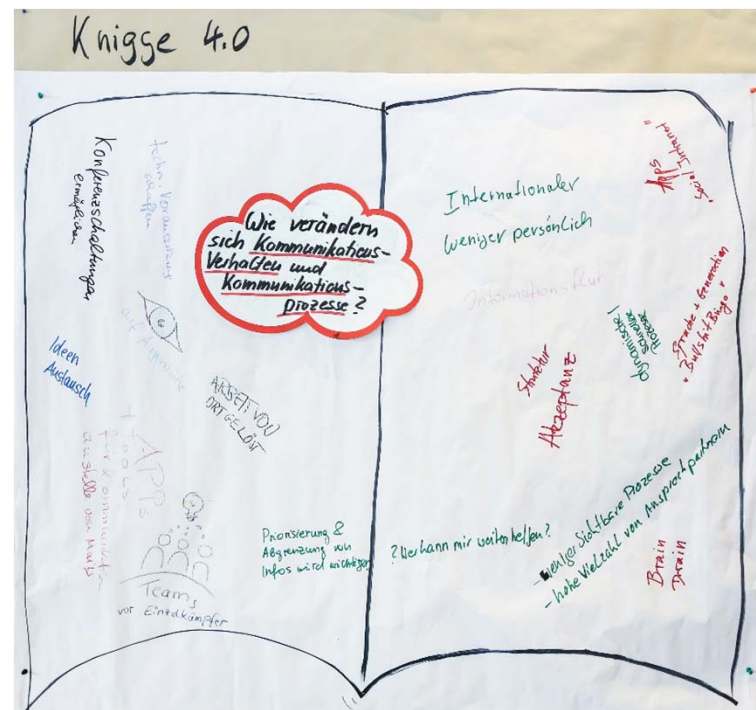 Knigge 4.0
Wie verändern
sich Kommunikations-
Verhalten und
Kommunikations-
prozesse?
Konferenzschaltungen
ermöglichen
techn. Voraussetzung
schaffen
auf Augenhöhe
Ideen
Austausch
ARBEIT VON
ORT GELÖST
APPs
+ Tools
für Kommunikation
anstelle von Mails
Teams
vor Einzelkämpfer
Priorisierung &
Abgrenzung von
Infos wird wichtiger
Internationaler
weniger persönlich
Informationsflut
Apps
"Social Intranet"
dynamische/
schnelle
Prozesse
Sprache + Generation
"Bullshit Bingo"
Struktur
Akzeptanz
? Wer kann mir weiterhelfen?
- weniger sichtbare Prozesse
- hohe Vielzahl von Ansprechpartnern
Brain
Drain